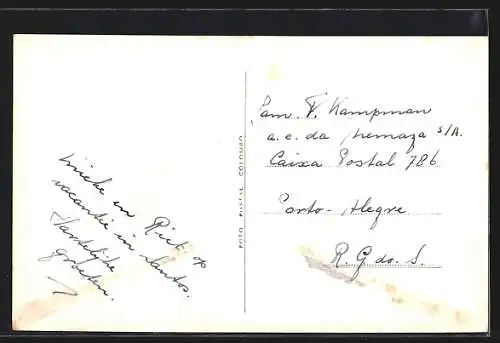 Lineke en Riet op
vacantie in Santos.
Hartelijke
groeten.
FOTO POSTAL COLOMBO
Fam. F. Kampman
a.c. da Aremaza S/A.
Caixa Postal 786
Porto-Alegre
R. G. do. S.